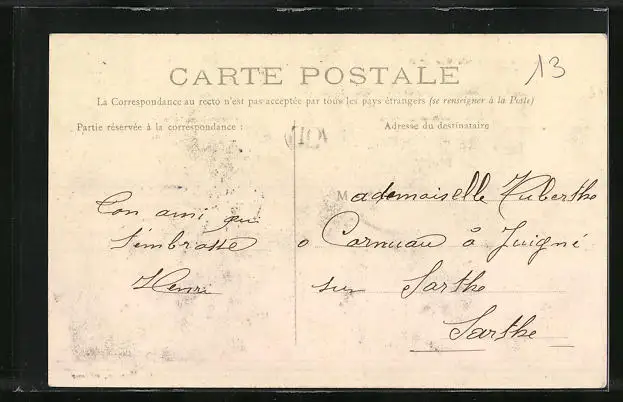 CARTE POSTALE
13
La Correspondance au recto n'est pas acceptée par tous les pays étrangers (se renseigner à la Poste)
Partie réservée à la correspondance :
Adresse du destinataire
Mademoiselle Huberthe
Cornuau à Juigné
sur Sarthe
Sarthe
Ton ami qui
t'embrasse
Henri